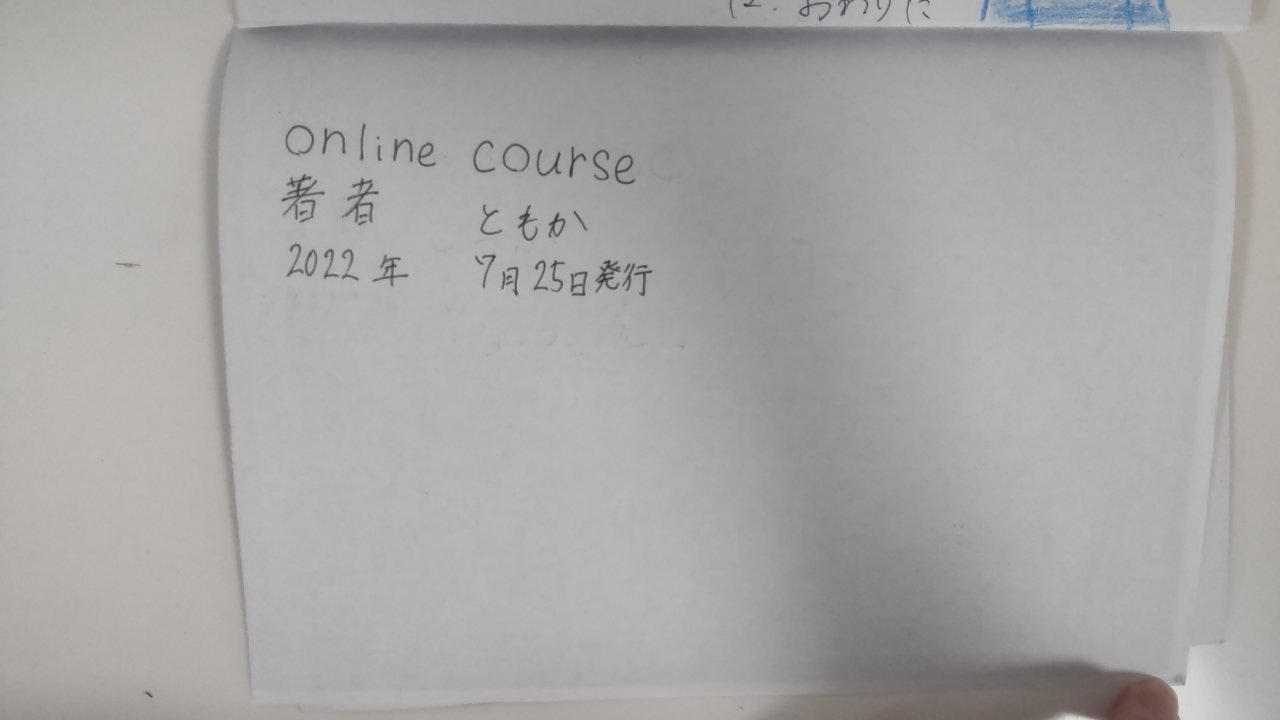 12. おわりに
online course
著者 ともか
2022年 7月25日発行